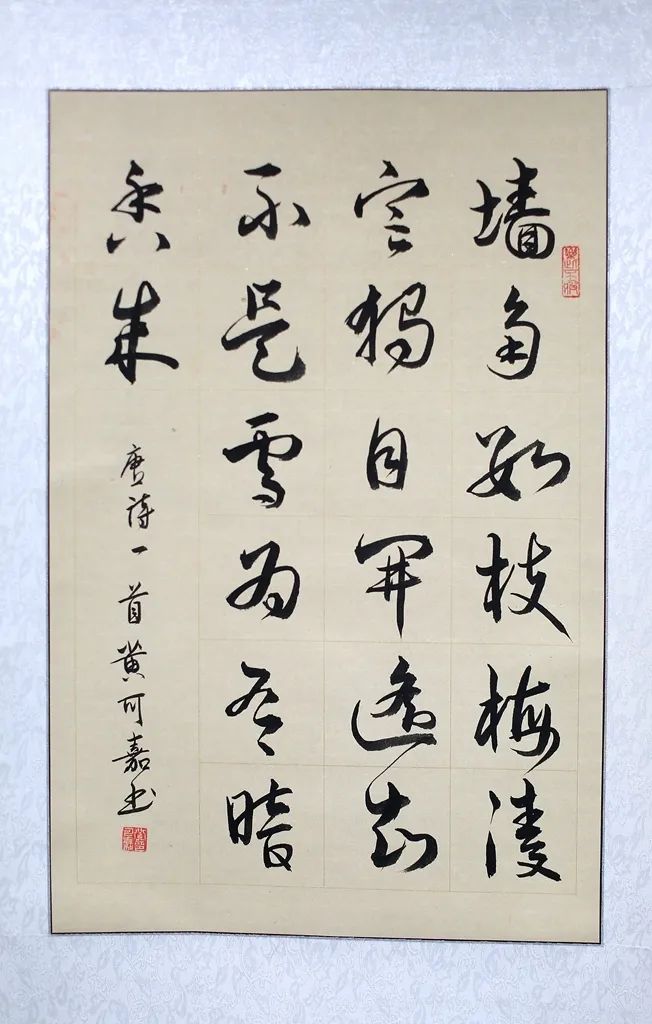 墙角数枝梅凌
寒独自开遥知
不是雪为有暗
香来
唐诗一首黄可嘉书